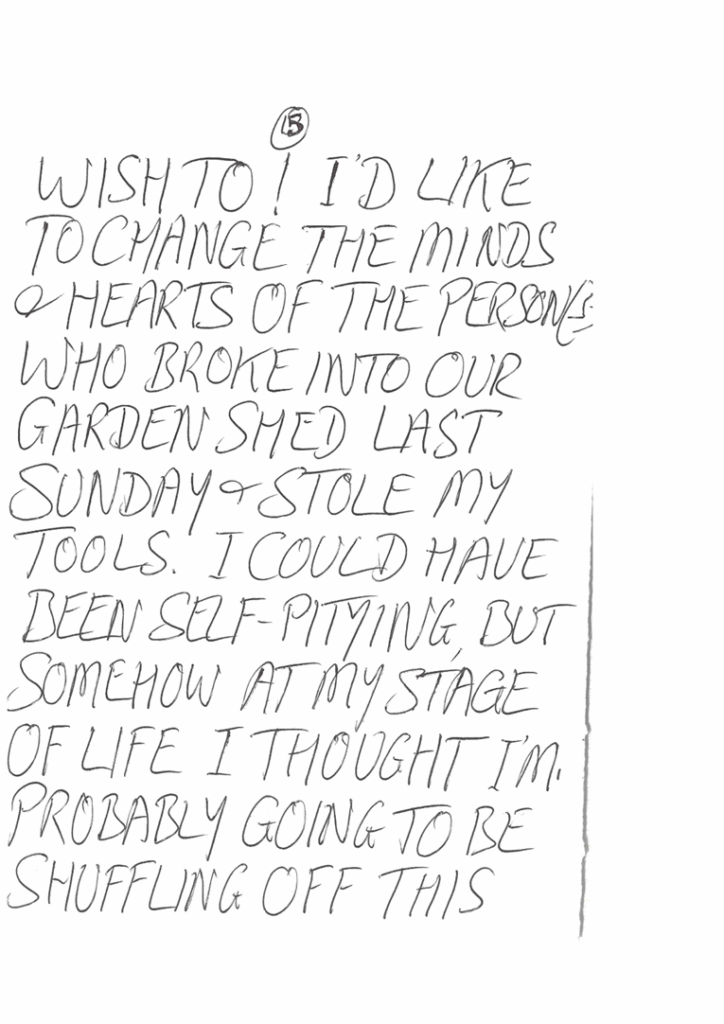 WISH TO! I'D LIKE
TO CHANGE THE MINDS
& HEARTS OF THE PERSON(S)
WHO BROKE INTO OUR
GARDEN SHED LAST
SUNDAY & STOLE MY
TOOLS. I COULD HAVE
BEEN SELF-PITYING, BUT
SOMEHOW AT MY STAGE
OF LIFE I THOUGHT I'M
PROBABLY GOING TO BE
SHUFFLING OFF THIS